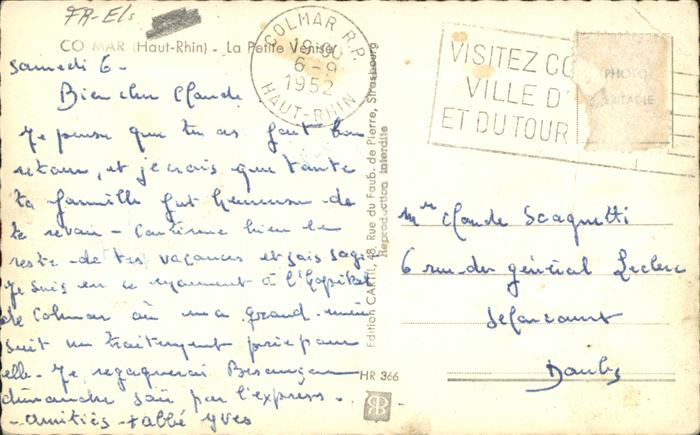 FR-Els
COLMAR (Haut-Rhin) - La Petite Venise
COLMAR R.P.
19:00
6-9
1952
HAUT-RHIN
VISITEZ CO
VILLE D'
ET DU TOUR
PHOTO
VÉRITABLE
samedi 6-
Bien cher Claude
Je pense que tu as fait bon
retour, et je crois que toute
ta famille fut heureuse de
te revoir - Continue bien le
reste de tes vacances et sois sage
Je suis en ce moment à l'hôpital
de Colmar où ma grand-mère
suit un traitement pour
elle - Je regagnerai Besançon
dimanche soir par l'express.
- amitiés - abbé Yves
Edition CARTIL, 48, Rue du Faub. de Pierre, Strasbourg
Reproduction interdite
HR 366
Claude Scaquetti
6 rue du général Leclerc
Seloncourt
Doubs